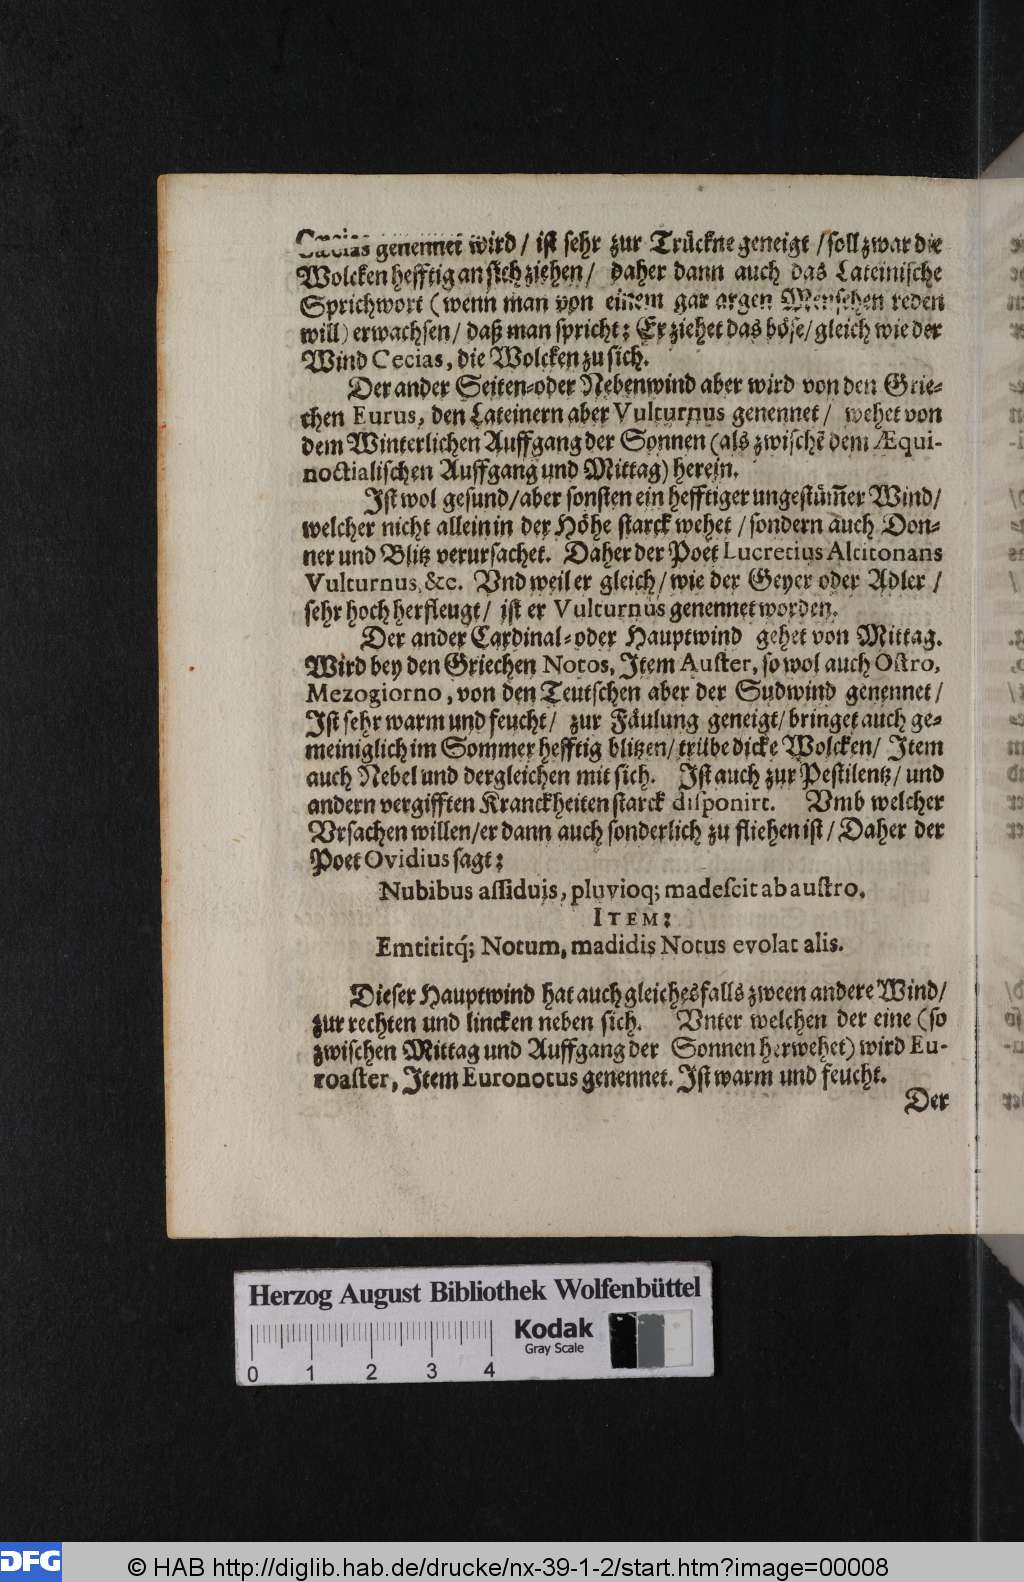 Cæcias genennet wird / ist sehr zur Trückne geneigt / soll zwar die
Wolcken hefftig an sich ziehen / daher dann auch das Lateinische
Sprichwort (wenn man von einem gar argen Menschen reden
will) erwachsen / daß man spricht: Er ziehet das böse / gleich wie der
Wind Cecias, die Wolcken zu sich.
Der ander Seiten- oder Nebenwind aber wird von den Grie-
chen Eurus, den Lateinern aber Vulturnus genennet / wehet von
dem Winterlichen Auffgang der Sonnen (als zwischẽ dem Æqui-
noctialischen Auffgang und Mittag) herein.
Ist wol gesund / aber sonsten ein hefftiger ungestüm̃er Wind /
welcher nicht allein in der Höhe starck wehet / sondern auch Don-
ner und Blitz verursachet. Daher der Poet Lucretius Altitonans
Vulturnus, &c. Vnd weil er gleich / wie der Geyer oder Adler /
sehr hoch herfleugt / ist er Vulturnus genennet worden.
Der ander Cardinal- oder Hauptwind gehet von Mittag.
Wird bey den Griechen Notos, Item Auster, so wol auch Ostro,
Mezogiorno, von den Teutschen aber der Sudwind genennet /
Ist sehr warm und feucht / zur Fäulung geneigt / bringet auch ge-
meiniglich im Sommer hefftig blitzen / trübe dicke Wolcken / Item
auch Nebel und dergleichen mit sich. Ist auch zur Pestilentz / und
andern vergifften Kranckheiten starck disponirt. Vmb welcher
Vrsachen willen / er dann auch sonderlich zu fliehen ist / Daher der
Poet Ovidius sagt:
Nubibus assiduis, pluvioq; madescit ab austro.
ITEM:
Emtititq́; Notum, madidis Notus evolat alis.
Dieser Hauptwind hat auch gleichesfalls zween andere Wind /
zur rechten und lincken neben sich. Vnter welchen der eine (so
zwischen Mittag und Auffgang der Sonnen herwehet) wird Eu-
roaster, Item Euronotus genennet. Ist warm und feucht.
Der
Herzog August Bibliothek Wolfenbüttel
Kodak
Gray Scale
0 1 2 3 4
DFG
© HAB http://diglib.hab.de/drucke/nx-39-1-2/start.htm?image=00008